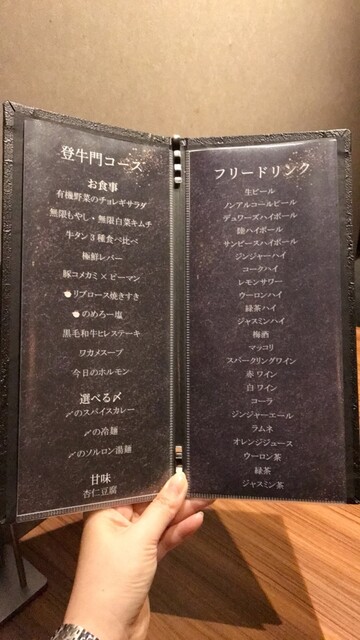 登牛門コース
お食事
有機野菜のチョレギサラダ
無限もやし・無限白菜キムチ
牛タン3種食べ比べ
極鮮レバー
豚コメカミ×ピーマン
リブロース焼きすき
のめろー塩
黒毛和牛ヒレステーキ
ワカメスープ
今日のホルモン
選べる〆
〆のスパイスカレー
〆の冷麺
〆のソルロン湯麺
甘味
杏仁豆腐
フリードリンク
生ビール
ノンアルコールビール
デュワーズハイボール
陸ハイボール
サンピースハイボール
ジンジャーハイ
コークハイ
レモンサワー
ウーロンハイ
緑茶ハイ
ジャスミンハイ
梅酒
マッコリ
スパークリングワイン
赤 ワイン
白 ワイン
コーラ
ジンジャーエール
ラムネ
オレンジジュース
ウーロン茶
緑茶
ジャスミン茶